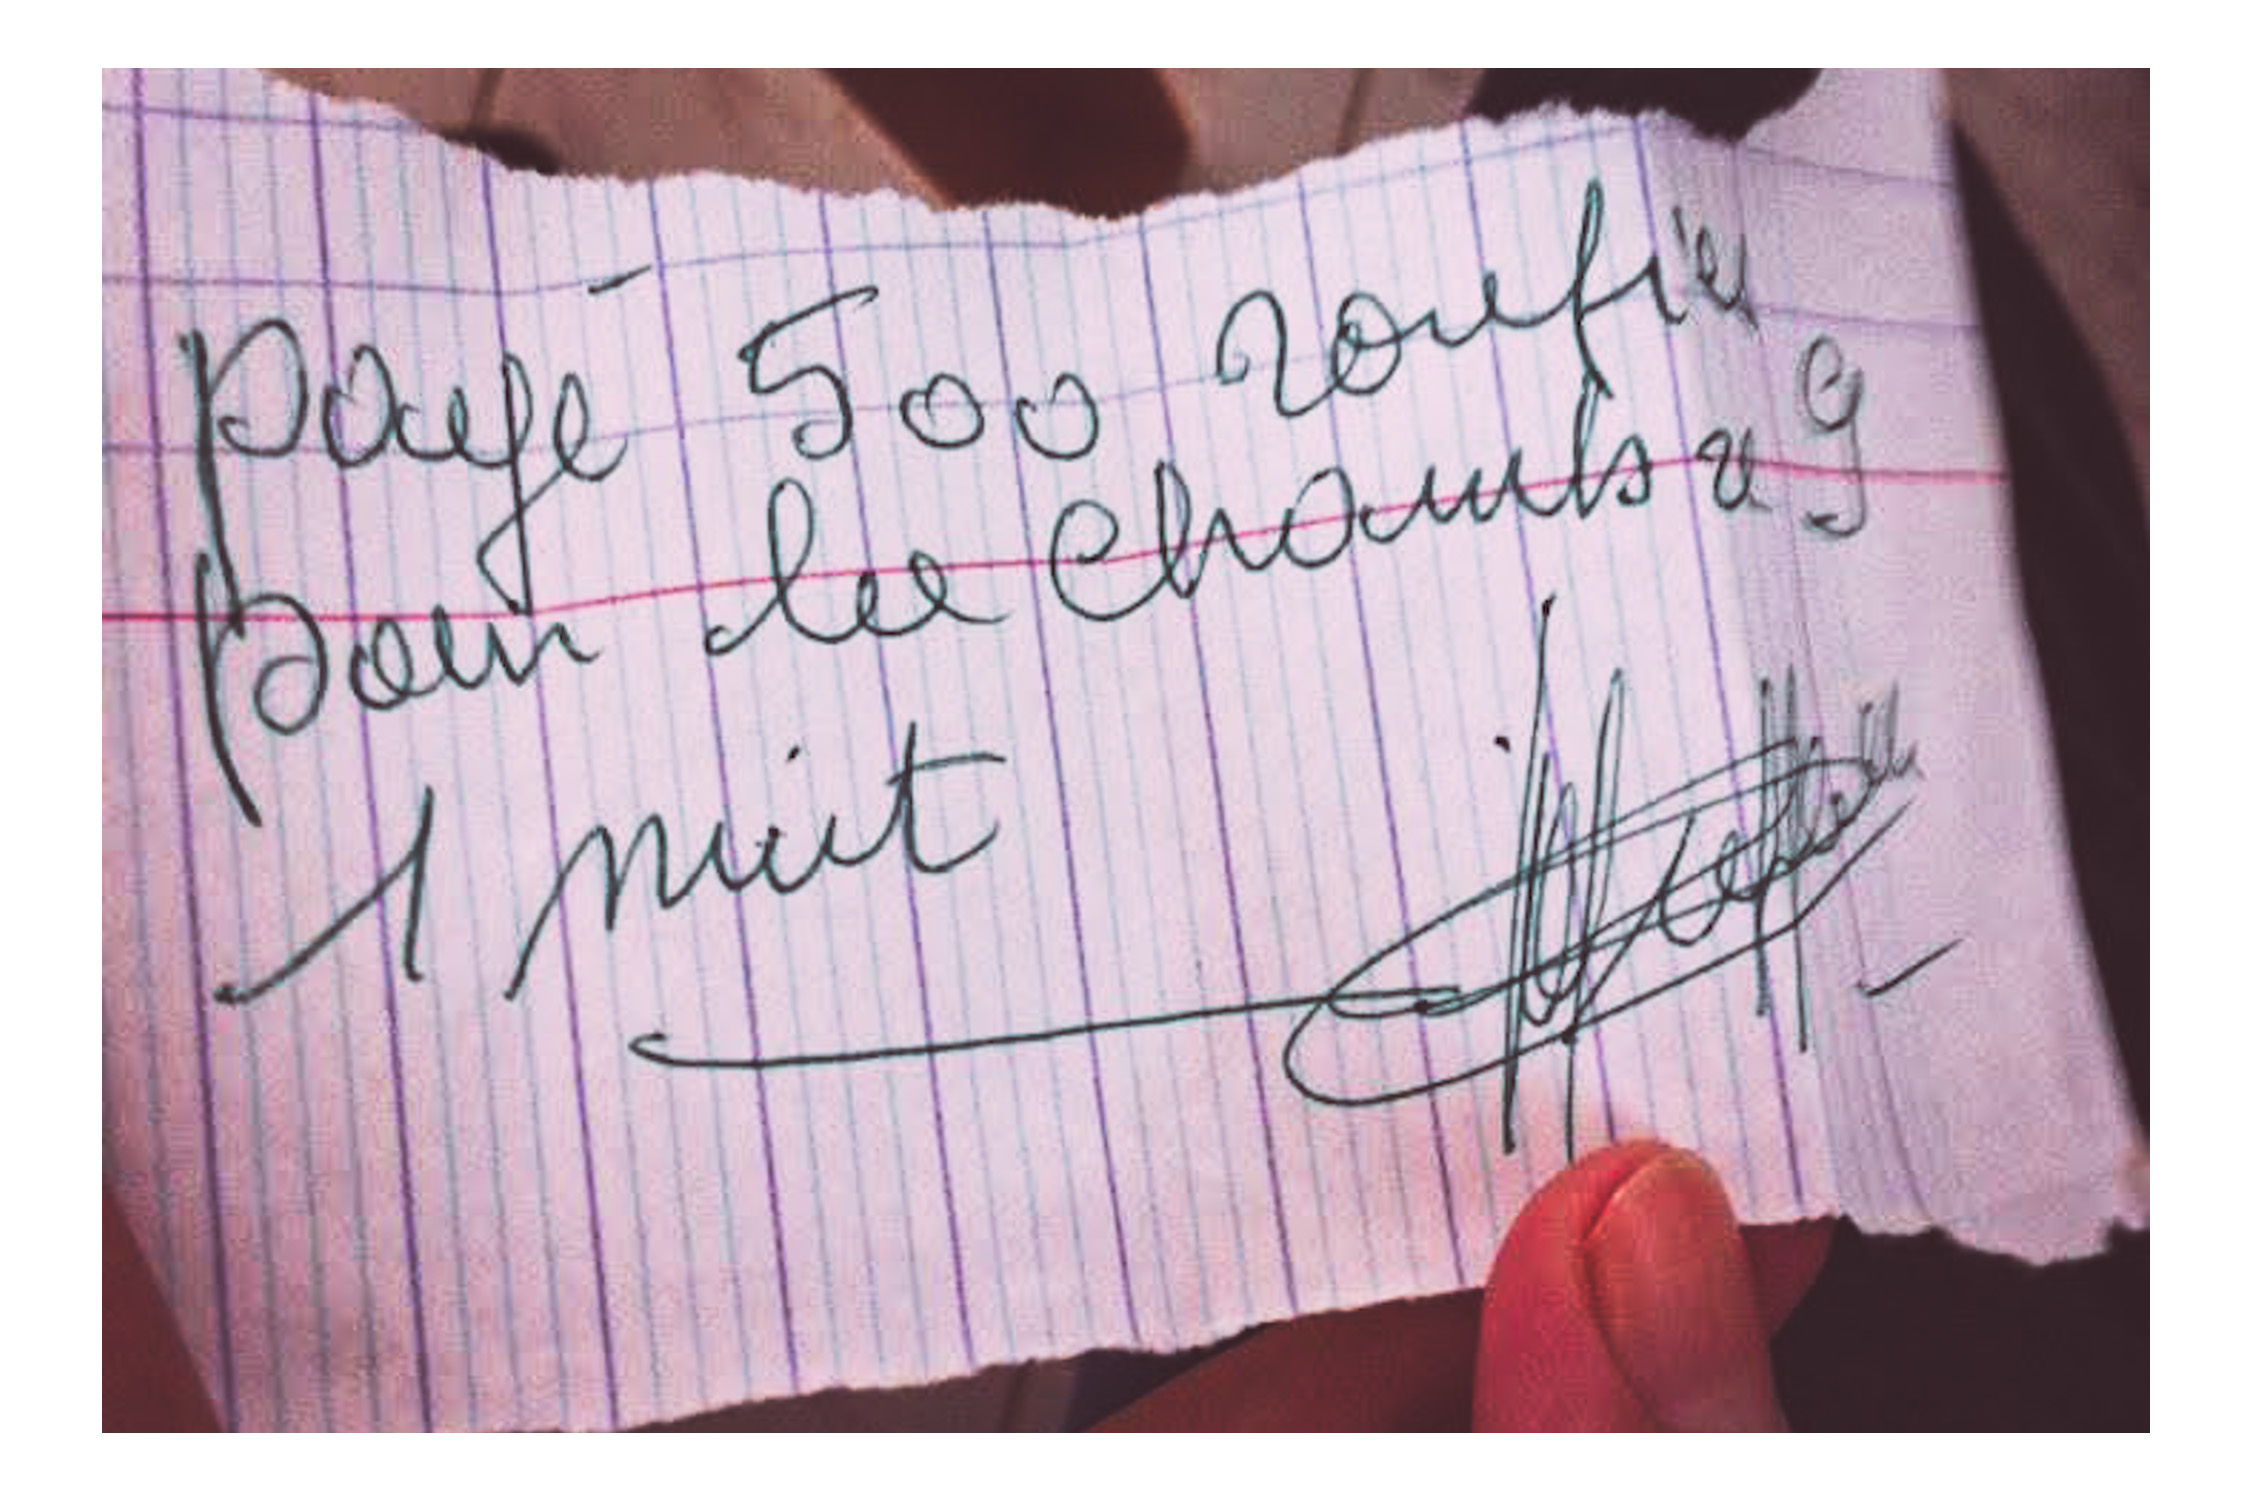 payé 500 roupies
pour la chambre 9
1 nuit